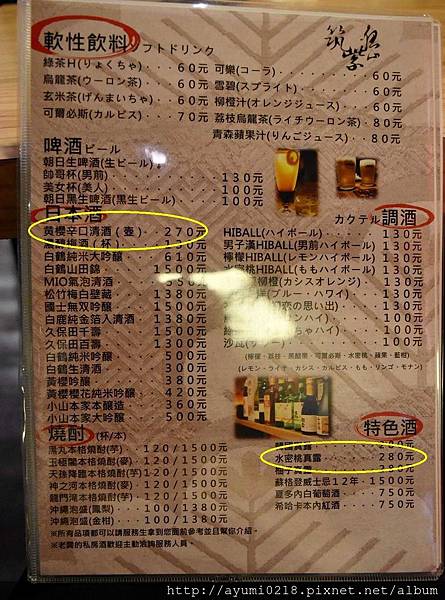 筑紫
軟性飲料ソフトドリンク
綠茶H(りょくちゃ)‥60元
烏龍茶(ウーロン茶)‥60元
玄米茶(げんまいちゃ)‥60元
可爾必斯(カルピス)‥70元
可樂(コーラ)‥‥60元
雪碧(スプライト)‥‥60元
柳橙汁(オレンジジュース)‥‥60元
荔枝烏龍茶(ライチウーロン茶)‥80元
青森蘋果汁(りんごジュース)‥‥80元
啤酒ビール
朝日生啤酒(生ビール)
帥哥杯(男前)‥‥130元
美女杯(美人)‥‥100元
朝日黑生啤酒(黒生ビール)‥130元
日本酒
黄櫻辛口清酒(壺)‥270元
梅酒(杯)‥130元
白鶴純米大吟釀‥610元
白鶴山田錦‥1500元
MIO氣泡清酒‥350元
松竹梅白壁藏‥1380元
國士無双吟釀‥1500元
白鹿純金箔入清酒‥1380元
久保田千壽‥1500元
久保田百壽‥1300元
白鶴純米吟釀‥500元
白鶴生清酒‥300元
黄櫻吟釀‥380元
黄櫻櫻花純米吟釀‥420元
小山本家本釀造‥360元
小山本家大吟釀‥500元
カクテル調酒
HIBALL(ハイボール)‥130元
男子漢HIBALL(男前ハイボール)‥130元
檸檬HIBALL(レモンハイボール)‥130元
水蜜桃HIBALL(ももハイボール)‥130元
柳橙(カシスオレンジ)‥130元
(ブルー・ハワイ)‥130元
の思い出)‥130元
ンハイ)‥100元
ちゃハイ)‥100元
沙瓦‥100元
(檸檬、荔枝、黑醋栗、可爾必斯、水蜜桃、蘋果、藍柑)
(レモン・ライチ・カシス・カルピス・もも・リンゴ・モナン)
燒酎(杯/本)
黑丸本格燒酎(芋)‥120/1500元
玉極閣本格燒酎(麥)‥120/1500元
天孫降臨本格燒酎(芋)‥120/1500元
神之河本格燒酎(麥)‥120/1500元
龍門灣本格燒酎(芋)‥120/1500元
沖繩泡盛(鳳梨)‥100/1500元
沖繩泡盛(金柑)‥100/1500元
※所有品項都可以請服務生拿到您面前參考並且幫你介紹。
※老闆的私房酒歡迎主動洽詢服務人員。
特色酒
水密桃真露‥280元
蘇格登威士忌12年‥1500元
夏多內白葡萄酒‥750元
希哈卡本內紅酒‥750元
http://ayumi0218.pixnet.net/album